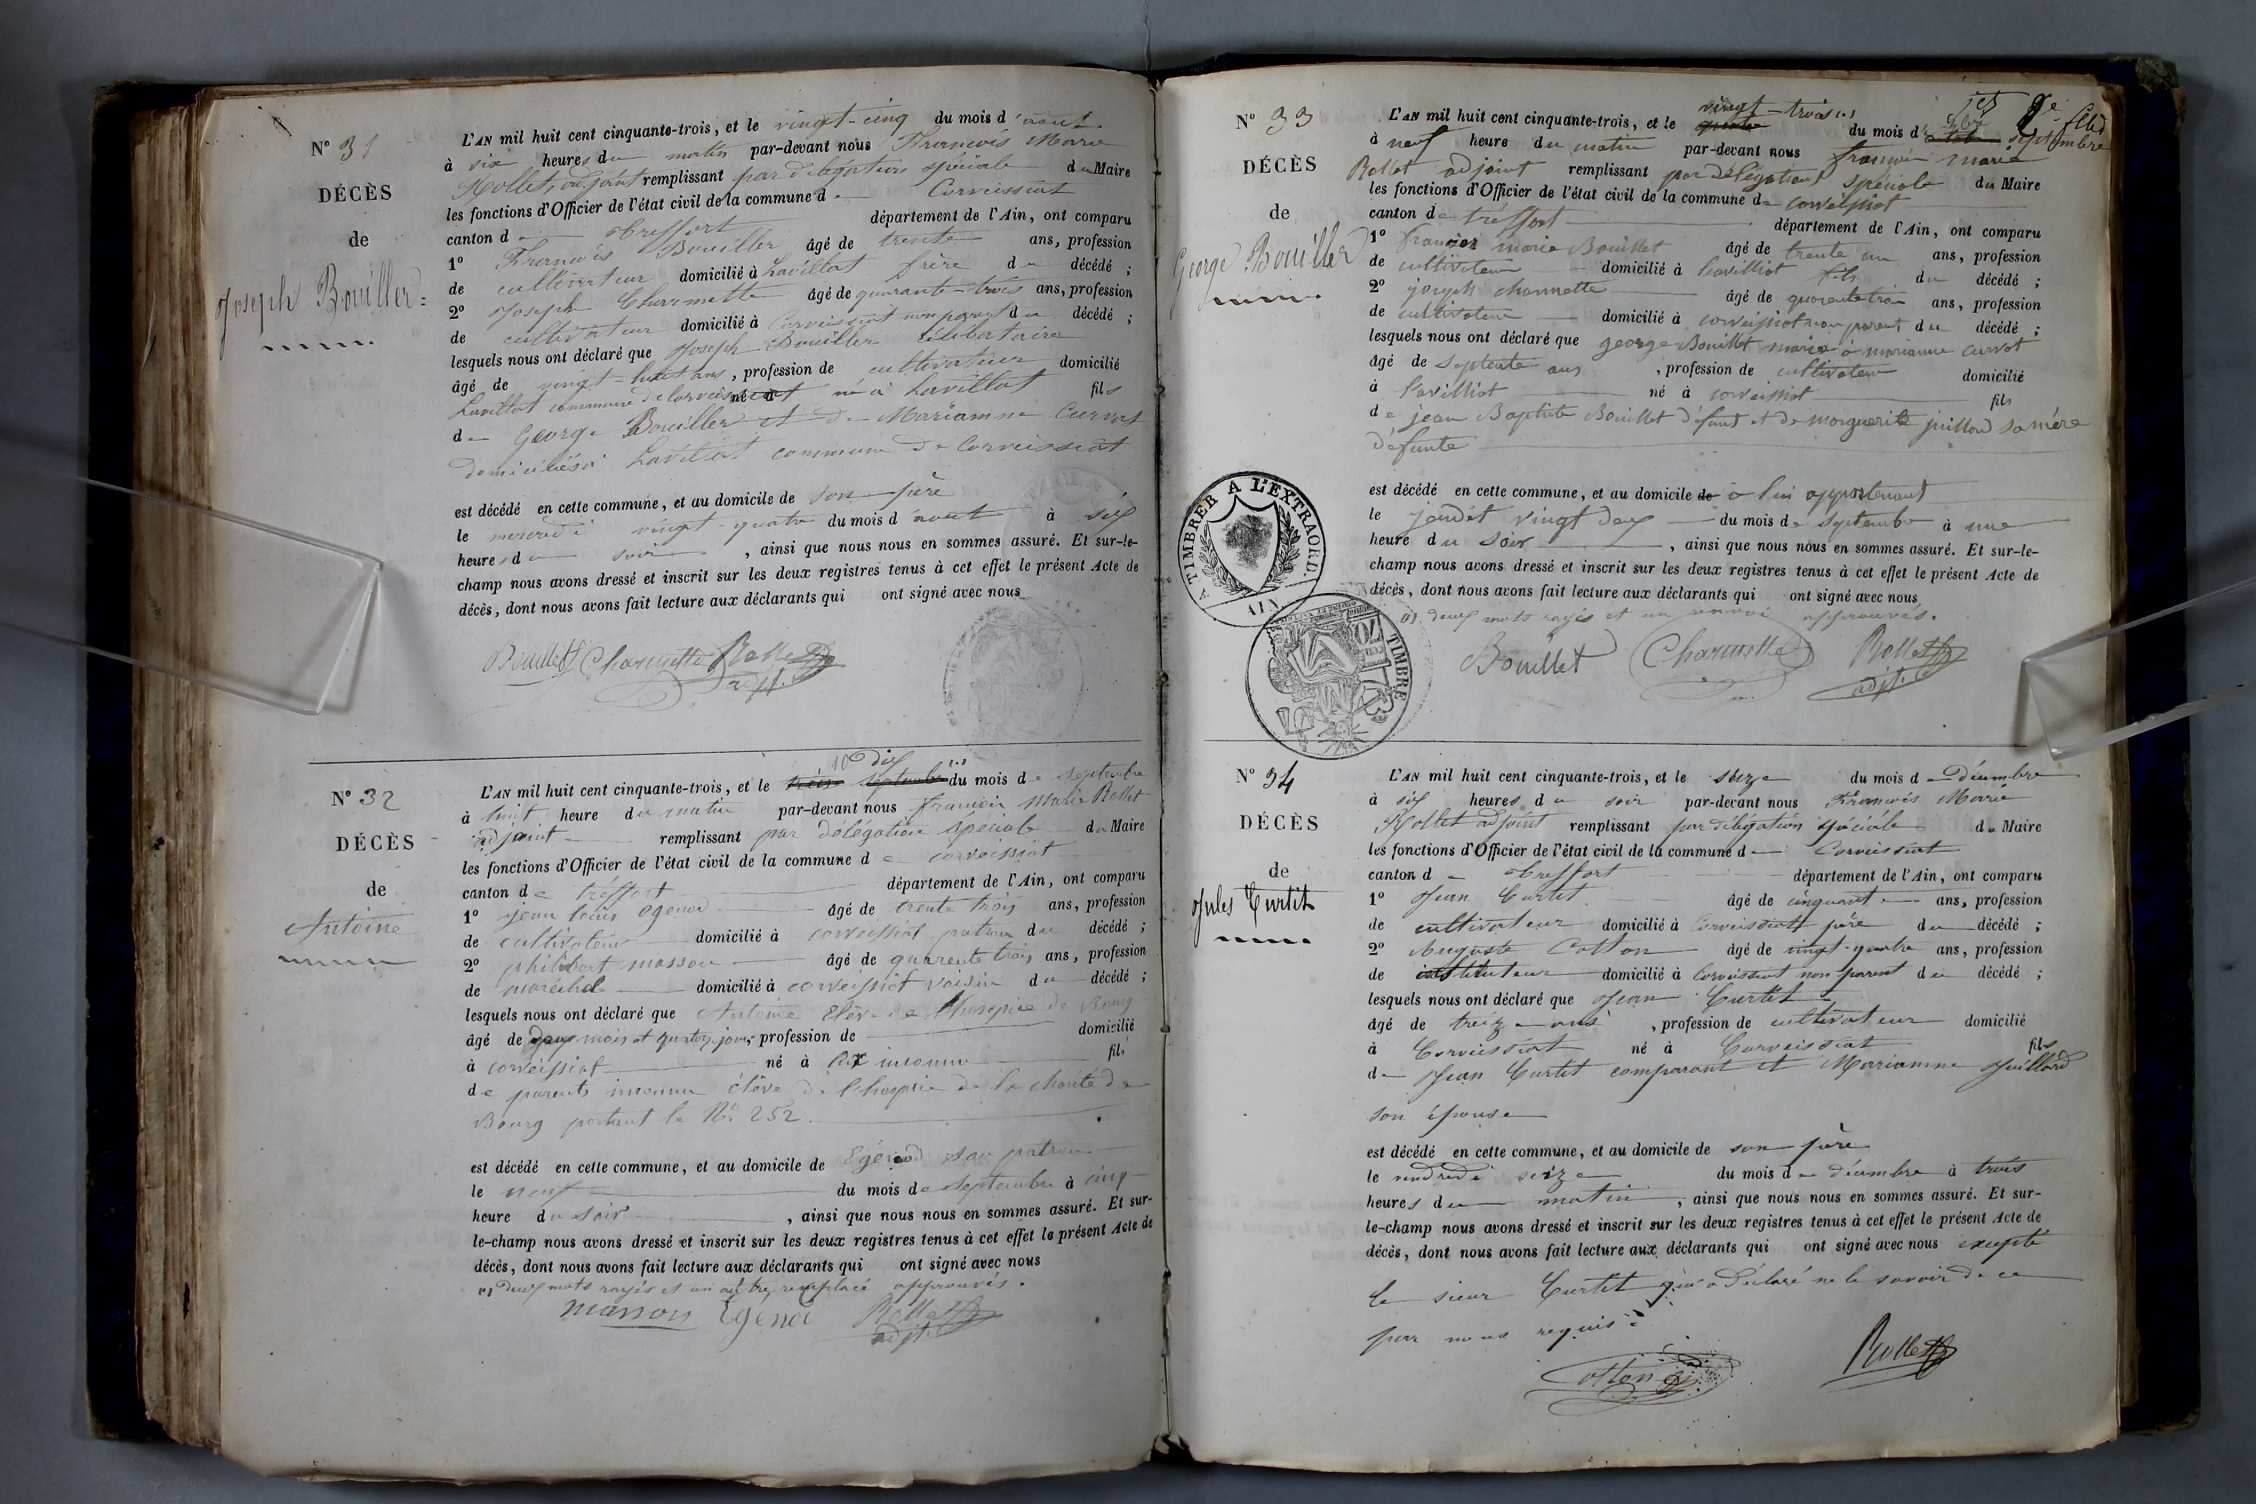 N° 31
DÉCÈS
de
Joseph Bouiller
L'AN mil huit cent cinquante-trois, et le vingt-cinq du mois d'août
à six heures du matin par-devant nous François Marie
Rollet, adjoint remplissant par délégation spéciale du Maire
les fonctions d'Officier de l'état civil de la commune de Corveissiat
canton de Treffort département de l'Ain, ont comparu
1° François Bouiller âgé de trente ans, profession
de cultivateur domicilié à Lavillat frère du décédé ;
2° Joseph Charmette âgé de quarante-trois ans, profession
de cultivateur domicilié à Corveissiat non parent du décédé ;
lesquels nous ont déclaré que Joseph Bouiller célibataire
âgé de vingt-huit ans, profession de cultivateur domicilié
Lavillat commune de Corveissiat né à Lavillat fils
de George Bouiller et de Mariamne Curvat
domiciliés à Lavillat commune de Corveissiat
est décédé en cette commune, et au domicile de son père
le mercredi vingt-quatre du mois d'août à six
heures du soir, ainsi que nous nous en sommes assuré. Et sur-le-
champ nous avons dressé et inscrit sur les deux registres tenus à cet effet le présent Acte de
décès, dont nous avons fait lecture aux déclarants qui ont signé avec nous
Bouillet Charmette Rollet
adjt.
N° 32
DÉCÈS
de
Antoine
10 dix (1)
L'AN mil huit cent cinquante-trois, et le treize septembre du mois de septembre
à huit heure du matin par-devant nous françois Marie Rollet
adjoint remplissant par délégation spéciale du Maire
les fonctions d'Officier de l'état civil de la commune de corveissiat
canton de tréffort département de l'Ain, ont comparu
1° jean louis ogenod âgé de trente trois ans, profession
de cultivateur domicilié à corveissiat patron du décédé ;
2° philibert masson âgé de quarente trois ans, profession
de maréchal domicilié à corveissiat voisin du décédé ;
lesquels nous ont déclaré que Antoine Elève de l'hospice de Bourg
âgé de deux mois et quatorze jours, profession de domicilié
à corveissiat né à inconnu fils
de parents inconnu élève de l'hospice de la charité de
Bourg portant le No. 252
est décédé en cette commune, et au domicile de Egénod son patron
le neuf du mois de septembre à cinq
heure du soir, ainsi que nous nous en sommes assuré. Et sur-
le-champ nous avons dressé et inscrit sur les deux registres tenus à cet effet le présent Acte de
décès, dont nous avons fait lecture aux déclarants qui ont signé avec nous
(1) deux mots rayés et un autre remplacé approuvés.
masson Egénod Rollet
adjt.
N° 33
DÉCÈS
de
George Bouiller
vingt-trois (1)
L'AN mil huit cent cinquante-trois, et le du mois de septembre
à neuf heure du matin par-devant nous françois marie
Rollet adjoint remplissant par délégation spéciale du Maire
les fonctions d'Officier de l'état civil de la commune de corveissiat
canton de tréffort département de l'Ain, ont comparu
1° francois marie Bouillet âgé de trente un ans, profession
de cultivateur domicilié à lavilliot fils du décédé ;
2° joseph charmette âgé de quarente trois ans, profession
de cultivateur domicilié à corveissiat non parent du décédé ;
lesquels nous ont déclaré que george Bouillet marié à marianne curvat
âgé de septente ans, profession de cultivateur domicilié
à lavilliot né à corveissiat fils
de jean Baptiste Bouillet défunt et de marguerite juillard sa mère
défunte
est décédé en cette commune, et au domicile de à lui appartenant
le jeudit vingt deux du mois de septembre à une
heure du soir, ainsi que nous nous en sommes assuré. Et sur-le-
champ nous avons dressé et inscrit sur les deux registres tenus à cet effet le présent Acte de
décès, dont nous avons fait lecture aux déclarants qui ont signé avec nous
(1) deux mots rayés et un renvoi approuvés.
Bouillet Charmette Rollet
adjt.
A TIMBRER A L'EXTRAORD.
AIN
TIMBRE
70
N° 34
DÉCÈS
de
Jules Curtit
L'AN mil huit cent cinquante-trois, et le seize du mois de Décembre
à six heures du soir par-devant nous François Marie
Rollet adjoint remplissant par délégation spéciale du Maire
les fonctions d'Officier de l'état civil de la commune de Corveissiat
canton de Treffort département de l'Ain, ont comparu
1° Jean Curtit âgé de cinquante ans, profession
de cultivateur domicilié à Corveissiat père du décédé ;
2° Auguste Cotton âgé de vingt-quatre ans, profession
de instituteur domicilié à Corveissiat non parent du décédé ;
lesquels nous ont déclaré que Jean Curtit
âgé de treize ans, profession de cultivateur domicilié
à Corveissiat né à Corveissiat fils
de Jean Curtit comparant et Mariamne Juillard
son épouse
est décédé en cette commune, et au domicile de son père
le vendredi seize du mois de décembre à trois
heures du matin, ainsi que nous nous en sommes assuré. Et sur-
le-champ nous avons dressé et inscrit sur les deux registres tenus à cet effet le présent Acte de
décès, dont nous avons fait lecture aux déclarants qui ont signé avec nous excepté
le sieur Curtit qui a déclaré ne le savoir de ce
par nous requis
Cotton Rollet